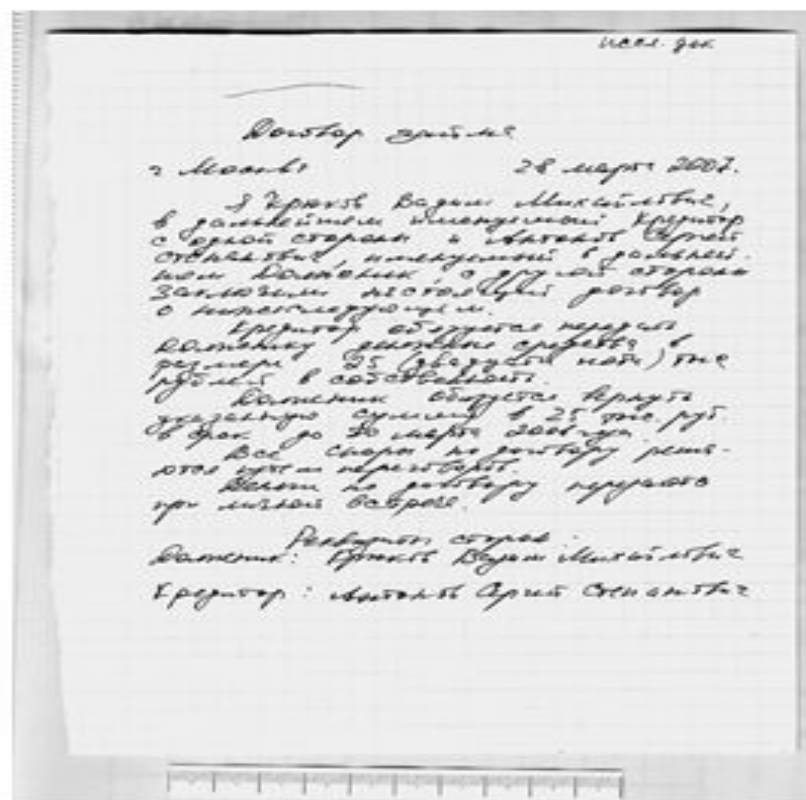 иссл. док
Договор займа
г Москва 28 марта 2007.
Я Крюков Вадим Михайлович,
в дальнейшем именуемый Кредитор
с одной стороны и Антонов Сергей
Степанович, именуемый в дальней-
шем Должник, с другой стороны
заключили настоящий договор
о нижеследующем.
Кредитор обязуется передать
Должнику денежные средства в
размере 25 (двадцать пять) тыс
рублей в собственность.
Должник обязуется вернуть
указанную сумму в 25 тыс. руб.
в срок до марта 2008 года.
Все споры по договору реша-
ются путем переговоров.
Деньги по договору переданы
при личной встрече.
Реквизиты сторон.
Должник: Крюков Вадим Михайлович
Кредитор: Антонов Сергей Степанович